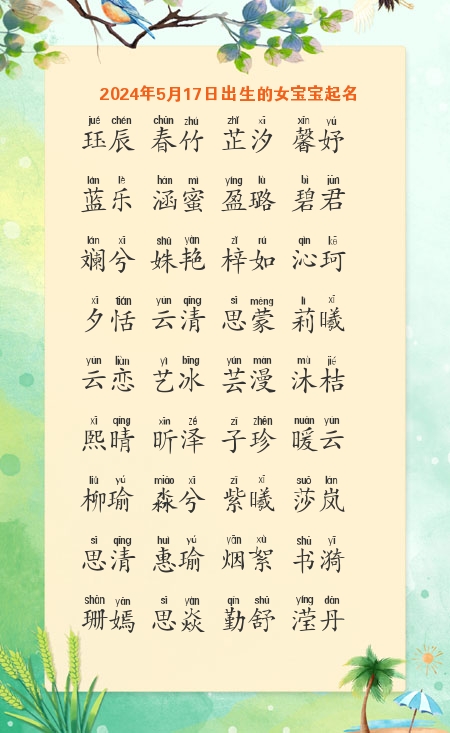 2024年5月17日出生的女宝宝起名
jué chén chūn zhú zhǐ xī xīn yú
珏辰 春竹 芷汐 馨妤
lán lè hán mì yíng lù bì jūn
蓝乐 涵蜜 盈璐 碧君
lán xī shū yàn zǐ rú qìn kē
斓兮 姝艳 梓如 沁珂
xī tián yún qīng sī méng lì xī
夕恬 云清 思蒙 莉曦
yún liàn yì bīng yún màn mù jié
云恋 艺冰 芸漫 沐桔
xī qíng xīn zé zǐ zhēn nuǎn yún
熙晴 昕泽 子珍 暖云
liǔ yú miǎo xī zǐ xī suō lán
柳瑜 淼兮 紫曦 莎岚
sī qīng huì yú yān xù shū yī
思清 惠瑜 烟絮 书漪
shān yān sī yàn qín shū yíng dān
珊嫣 思焱 勤舒 滢丹